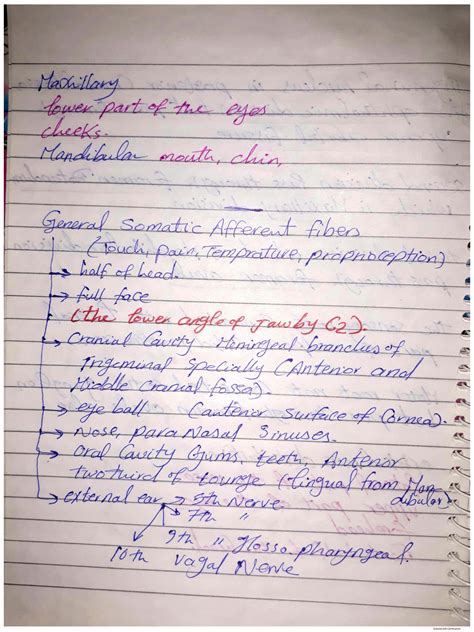 Maxhillary
lower part of the eyes
cheeks.
Mandibular mouth, chin,
General Somatic Afferent fibers
(Touch, pain, Temprature, proprioception)
→ half of head.
→ full face
(the lower angle of Jaw by C2).
→ Cranial Cavity Miningeal branches of
Trigeminal Specially (Anterior and
Middle cranial fossa).
→ eye ball Canterior Surface of Cornea).
→ Nose, para Nasal Sinuses.
→ Oral Cavity Gums. teeth Anterior
two third of tounge (lingual from Man
dibular)
→ external ear → 5th Nerve
7th "
9th " Glossopharyngeal.
10th Vagal Nerve